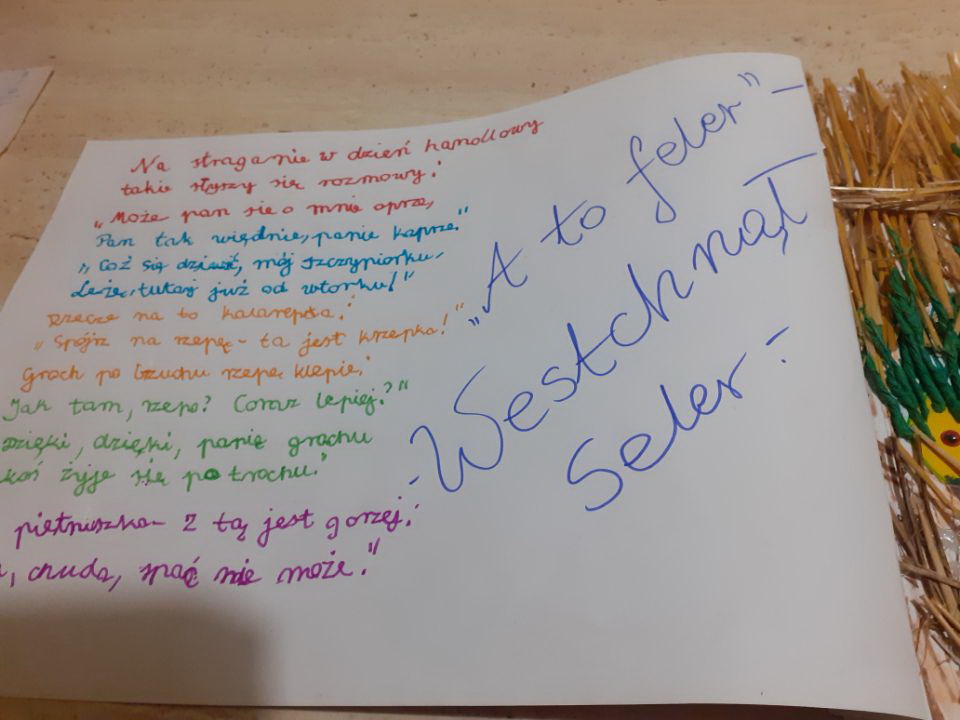 Na straganie w dzień handlowy
takie słyszy się rozmowy:
„Może pan się o mnie oprze,
Pan tak więdnie, panie koprze."
„Cóż się dziwić, mój szczypiorku,
Leżę, tutaj już od wtorku!"
Rzecze na to kalarepka:
„Spójrz na rzepę - ta jest krzepka!"
Groch po brzuchu rzepę klepie:
Jak tam, rzepo? Coraz lepiej?"
Dzięki, dzięki, panie grochu
koś żyje się po trochu.
pietruszka - z tą jest gorzej:
, chuda, spać nie może."
„A to feler" -
- Westchnął
Seler -